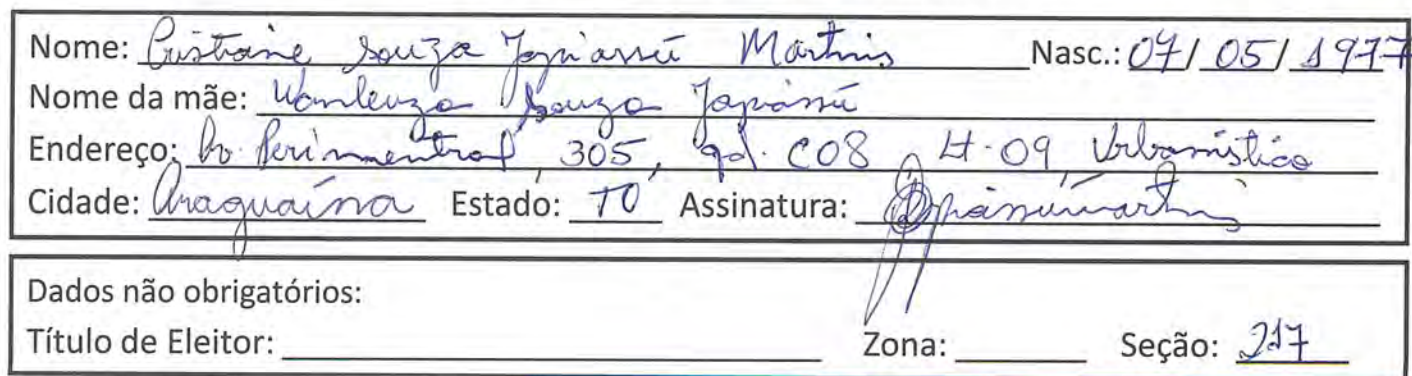 Nome: Cristiane Souza Japiassú Martins Nasc.: 07/05/1977
Nome da mãe: Wanleuza Souza Japiassú
Endereço: Av. Perimentral, 305, qd. C08, Lt. 09, Urbanístico
Cidade: Araguaína Estado: TO Assinatura: Japiassúmartins
Dados não obrigatórios:
Título de Eleitor: Zona: Seção: 217